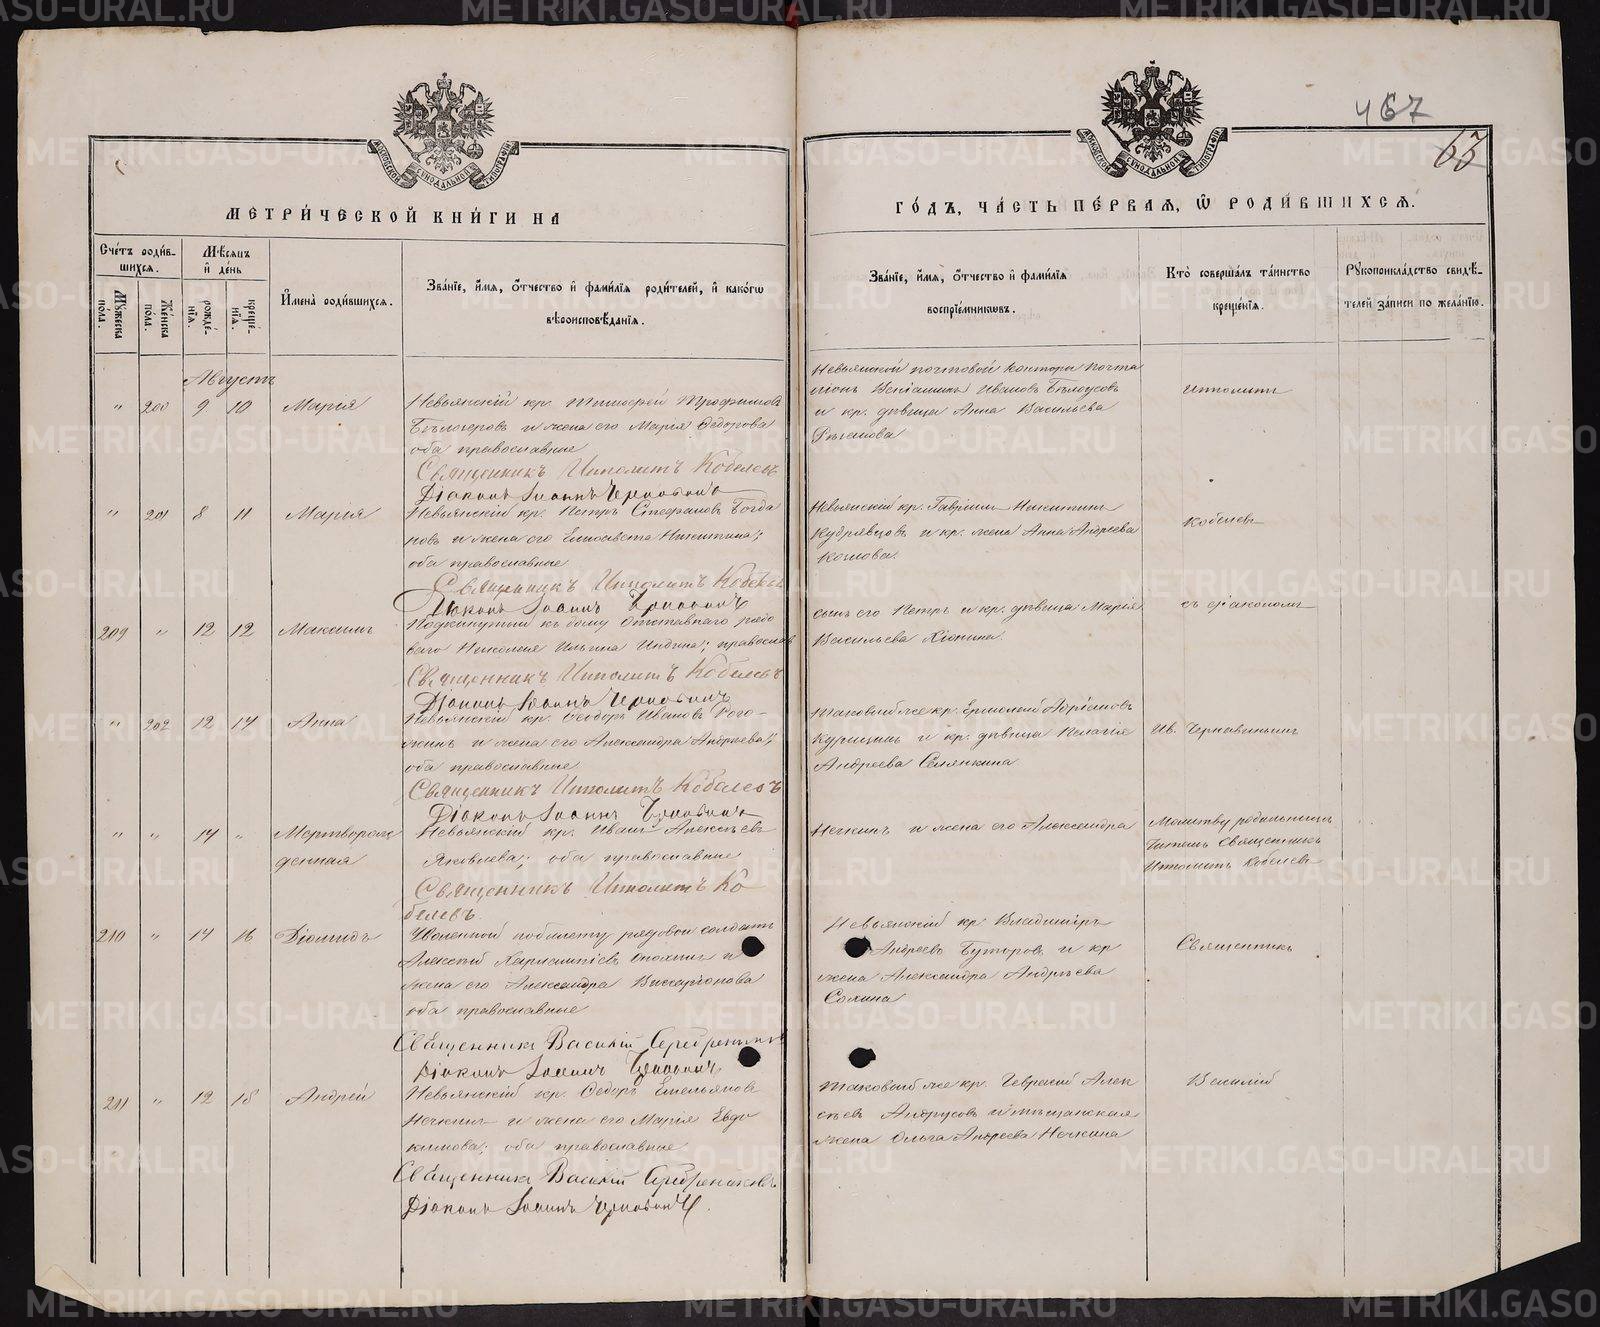 467
63
МЕТРИ́ЧЕСКОЙ КНИ́ГИ НА
ГО́ДЪ, ЧА́СТЬ ПЕ́РВАЯ, Ѡ РОДИ́ВШИХСЯ.
Сче́тъ роди́в-
шихся.
Му́жеска пола.
Же́нска пола.
Мѣ́сяцъ
и҆ де́нь
рожде́-
нїя.
креще́-
нїя.
И҆мена̀ роди́вшихся.
Зва́нїе, и҆́мя, ѻ҆́тчество и҆ фами́лїя роди́телей, и҆ како́гѡ
вѣроисповѣ́данїя.
Зва́нїе, и҆́мя, ѻ҆́тчество и҆ фами́лїя
воспрїе́мникѡвъ.
Кто̀ соверша́лъ та́инство
креще́нїя.
Рꙋкоприкла́дство свидѣ́-
телей за́писи по жела́нїю.
Августъ
" 200 9 10 Марія
Невьянскій кр. Тимофей Трофимовъ
Бѣлоусровъ и жена его Марія Ѳедорова
оба православные
Священникъ Ипполитъ Кобелевъ
Діаконъ Іоаннъ Чернавинъ
Невьянской почтовой конторы почта
ліонъ Веніаминъ Ивановъ Бѣлоусовъ
и кр. дѣвица Анна Васильева
Ипполитъ
" 201 8 11 Марія
Невьянскій кр. Петръ Стефановъ Богда
новъ и жена его Елисавета Никитина;
оба православные
Священникъ Ипполитъ Кобелевъ
Діаконъ Іоаннъ Чернавинъ
Невьянскій кр. Гавріилъ Никитинъ
Кудрявцовъ и кр. жена Анна Андреева
Кобелевъ
209 " 12 12 Максимъ
Подкинутый къ дому отставнаго рядо
ваго Николая Ильина Индина; православ
Священникъ Ипполитъ Кобелевъ
Діаконъ Іоаннъ Чернавинъ
сынъ его Петръ и кр. дѣвица Марія
Васильева Хіонина.
съ діакономъ
" 202 12 14 Анна
Невьянскій кр. Ѳеодоръ Ивановъ Рого-
жинъ и жена его Александра Андреева;
оба православные
Священникъ Ипполитъ Кобелевъ
Діаконъ Іоаннъ Чернавинъ
Таковый же кр. Ермолай Адріановъ
Курицынъ и кр. дѣвица Пелагія
Андреева Селянкина
Ив. Чернавинымъ
" " 14 " Мертворож
денная
Невьянскій кр. Иванъ Алексѣевъ
Яковлева; оба православные
Священникъ Ипполитъ Ко
белевъ.
Нечкинъ и жена его Александра
Молитву родильницѣ
читалъ Священникъ
Ипполитъ Кобелевъ
210 " 14 16 Діомидъ
Уволенный по билету рядовой солдатъ
Алексѣй Харлампіевъ и
жена его Александра Виссаріонова
оба православные
Священникъ Василій Серебренниковъ
Діаконъ Іоаннъ Чернавинъ
Невьянскій кр Владиміръ
Андреевъ Буторовъ и кр
жена Александра Андреева
Священникъ
211 " 12 18 Андрей
Невьянскій кр. Ѳедоръ Емельяновъ
Нечкинъ и жена его Марія Евдо
кимова; оба православные
Священникъ Василій Серебренниковъ
Діаконъ Іоаннъ Чернавинъ.
Таковый же кр. Георгій Алек
сѣевъ Андрусовъ и мѣщанская
жена Ольга Андреева Нечкина
Василій